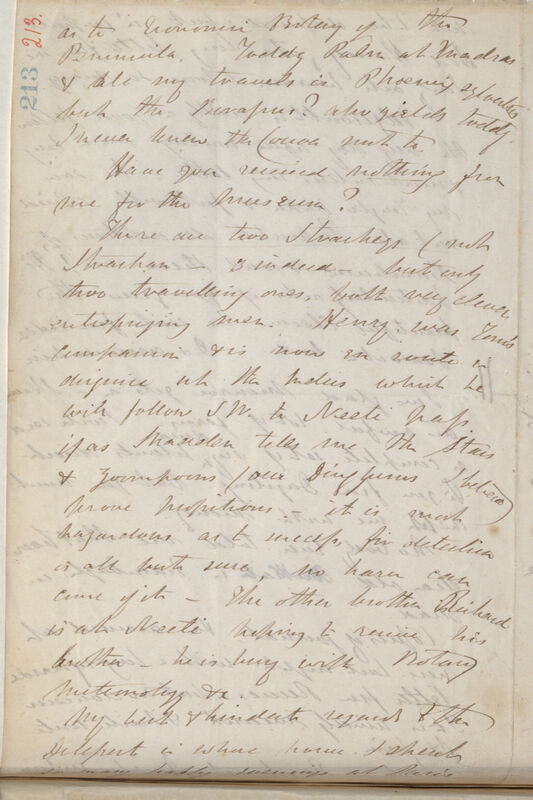 213.
213
as to Economic Botany of the
Peninsula, Toddy Palm at Madras
& all my travels is Phoenix sylvestris
but the Borassus? also yields toddy.
I never knew the Cocoa nut to.
Have you received nothing from
me for the Museum?
There are two Stracheys (not
Strachan — 3 indeed — but only
two travelling ones, both very clever
enterprizing men. Henry was Toms
companion & is now en route in
disguise up the Indus which he
will follow S.W. to Neetee pass.
if as Madden tells me the Stars
& Zoompoons (our Dingpuns I believe)
prove propitious — it is most
hazardous as to success, for detection
is all but sure, no harm can
come of it — The other brother Richard
is at Neetee hoping to receive his
brother — he is busy with Botany
Meteorology &c.
My best & kindest regards to the
at whose house I spent
so many happy evenings at